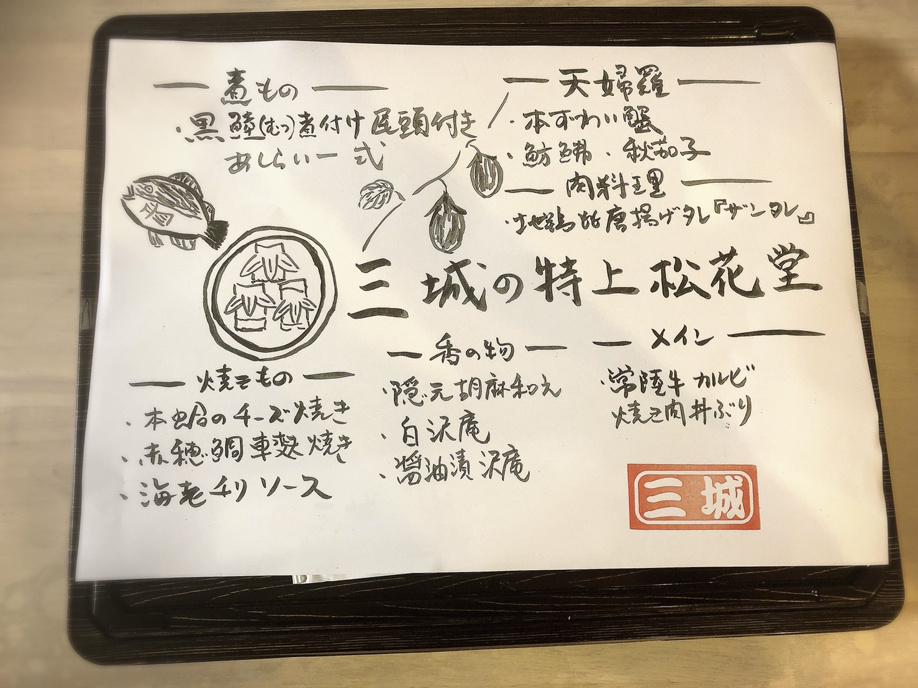 煮もの
・黒鯥(むつ)煮付け尾頭付き
あしらい一式
天婦羅
・本ずわい蟹
・魴鮄・秋茄子
肉料理
・地鶏 唐揚げタレ『ザンタレ』
三城の特上松花堂
焼きもの
・本蛤のチーズ焼き
・赤穂鯛 焼き
・海老チリソース
香の物
・隠元胡麻和え
・白沢庵
・醤油漬沢庵
メイン
・常陸牛カルビ
焼き肉丼ぶり
三城